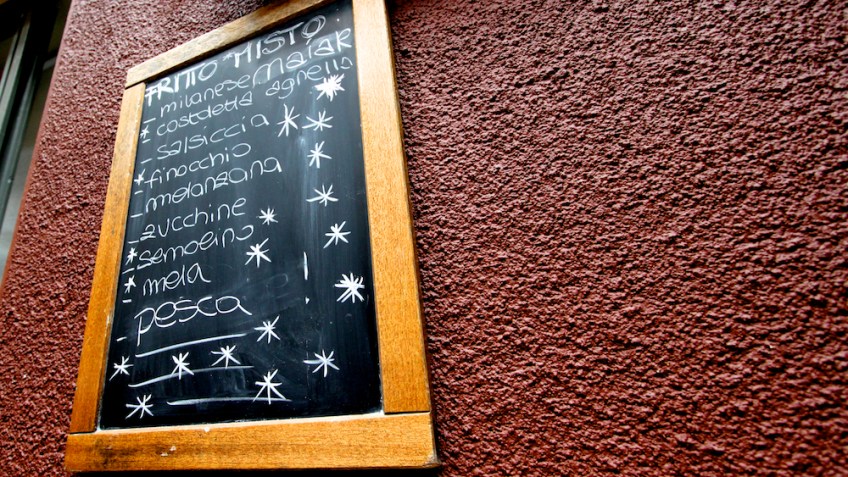 FRITTO MISTO:
- milanese MAIAK
- costoletta agnello
- salsiccia
- finocchio
- melanzana
- zucchine
- semolino
- mela
- pesca